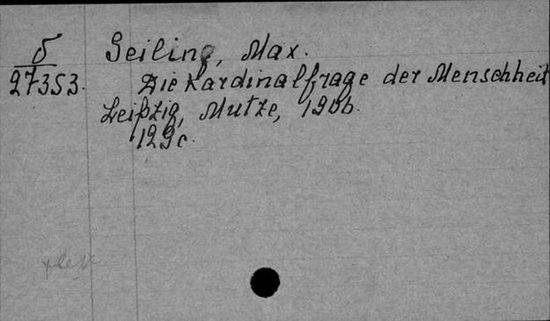 б Seiling, Max.
27353. Die Kardinalfrage der Menschheit
Leipzig, Mutze, 1906.
129 c.